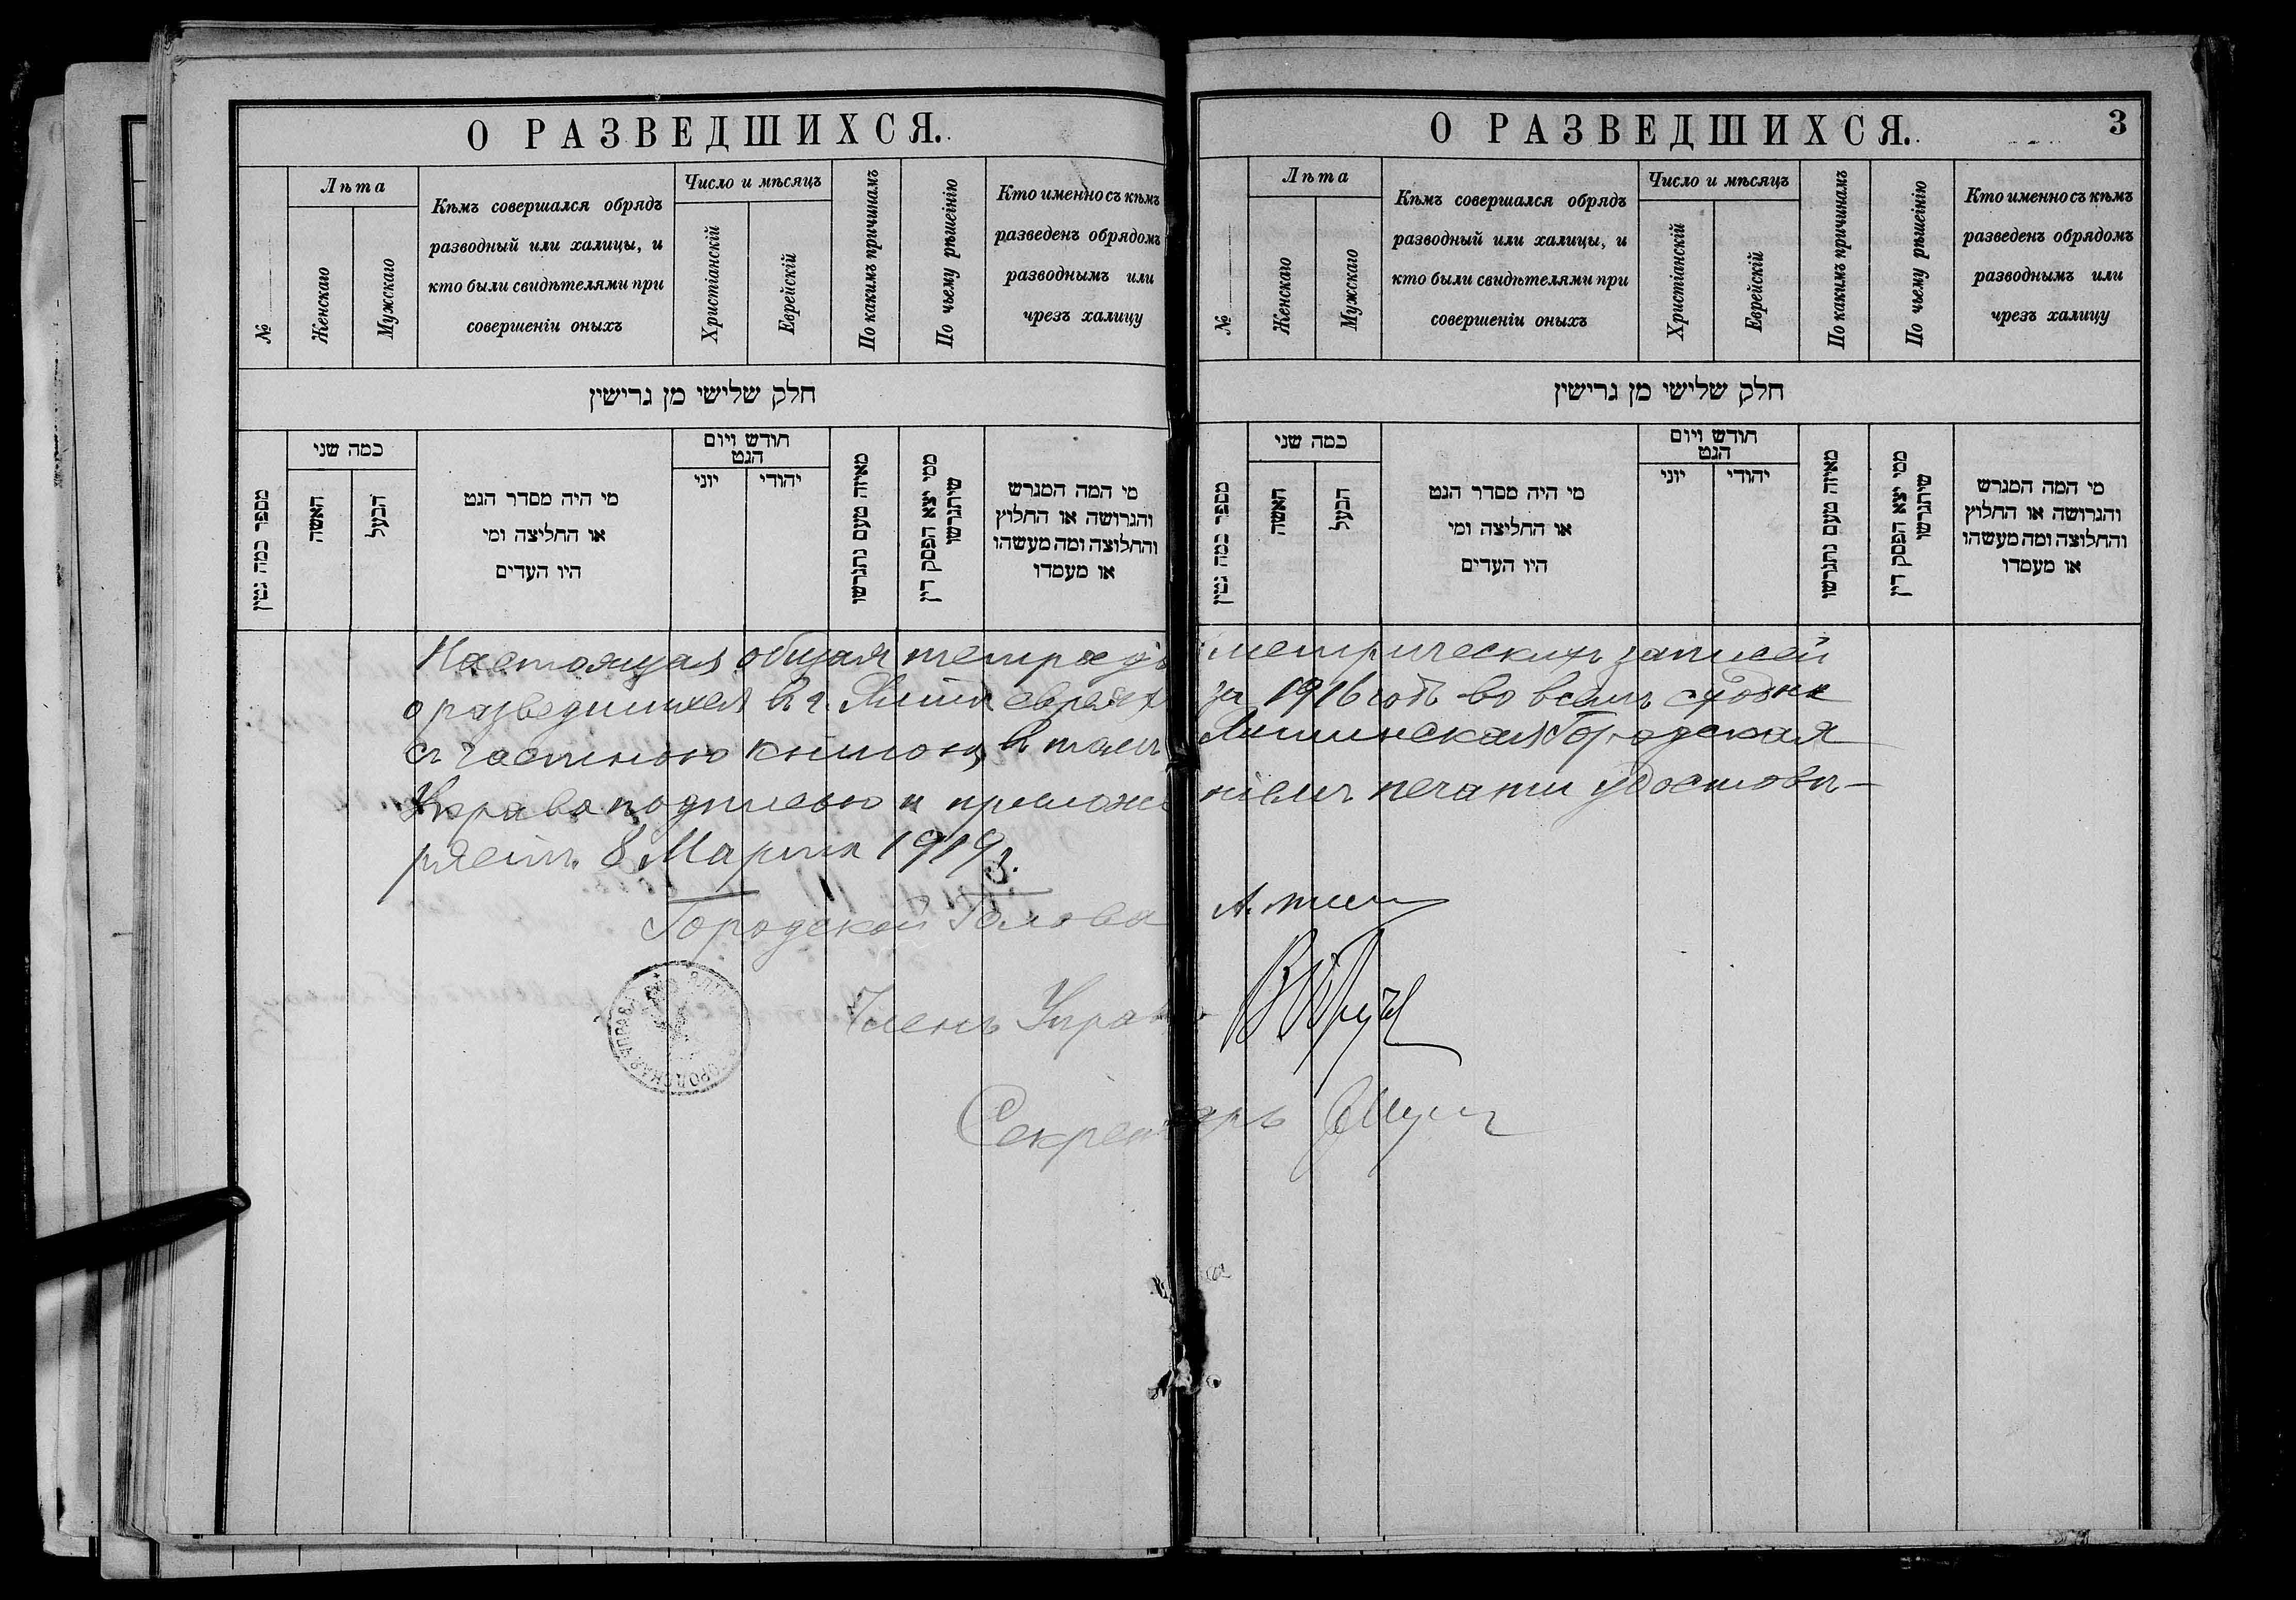 О РАЗВЕДШИХСЯ.
№
Лѣта
Женскаго
Мужскаго
Кѣмъ совершался обрядъ
разводный или халицы, и
кто были свидѣтелями при
совершеніи оныхъ
Число и мѣсяцъ
Христіанскій
Еврейскій
По какимъ причинамъ
По чьему рѣшенію
Кто именно съ кѣмъ
разведенъ обрядомъ
разводнымъ или
чрезъ халицу
חלק שלישי מן גרישין
מספר כמה גטין
כמה שני
האשה
הבעל
מי היה מסדר הגט
או החליצה ומי
היו העדים
חודש ויום
הגט
יוני
יהודי
מאיזה טעם נתגרשו
ממי יצא הפסק דין
שיתגרשו
מי המה המגרש
והגרושה או החלוץ
והחלוצה ומה מעשהו
או מעמדו
О РАЗВЕДШИХСЯ.
3
№
Лѣта
Женскаго
Мужскаго
Кѣмъ совершался обрядъ
разводный или халицы, и
кто были свидѣтелями при
совершеніи оныхъ
Число и мѣсяцъ
Христіанскій
Еврейскій
По какимъ причинамъ
По чьему рѣшенію
Кто именно съ кѣмъ
разведенъ обрядомъ
разводнымъ или
чрезъ халицу
חלק שלישי מן גרישין
מספר כמה גטין
כמה שני
האשה
הבעל
מי היה מסדר הגט
או החליצה ומי
היו העדים
חודש ויום
הגט
יוני
יהודי
מאיזה טעם נתגרשו
ממי יצא הפסק דין
שיתגרשו
מי המה המגרש
והגרושה או החלוץ
והחלוצה ומה מעשהו
או מעמדו
Настоящая общая тетрадь метрическихъ записей
о разведшихся въ г. Ялтѣ евреях за 1916 годъ во всемъ сходна
съ частною книгою, въ чемъ Ялтинская Городская
Управа подписью и приложеніемъ печати удостовѣ-
ряетъ. 8 Марта 1919 г.
Городской Голова
Членъ Управы
Секретарь
ГОРОДСКАЯ УПРАВА